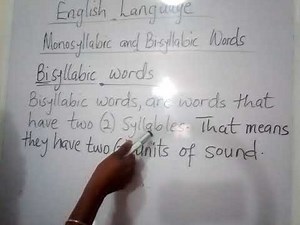 English Language
Monosyllabic and Bisyllabic Words
Bisyllabic words
Bisyllabic words, are words that
have two (2) Syllables. That means
they have two units of sound.